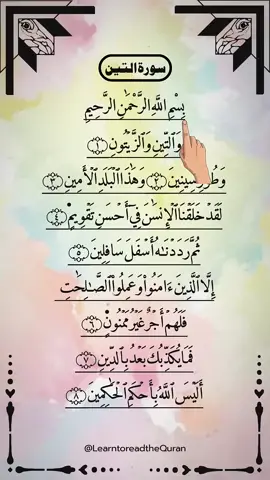 سورة التين
بِسْمِ ٱللَّهِ ٱلرَّحْمَٰنِ ٱلرَّحِيمِ
وَٱلتِّينِ وَٱلزَّيْتُونِ ١
وَطُورِ سِينِينَ ٢ وَهَٰذَا ٱلْبَلَدِ ٱلْأَمِينِ ٣
لَقَدْ خَلَقْنَا ٱلْإِنسَٰنَ فِىٓ أَحْسَنِ تَقْوِيمٍ ٤
ثُمَّ رَدَدْنَٰهُ أَسْفَلَ سَٰفِلِينَ ٥
إِلَّا ٱلَّذِينَ ءَامَنُوا۟ وَعَمِلُوا۟ ٱلصَّٰلِحَٰتِ
فَلَهُمْ أَجْرٌ غَيْرُ مَمْنُونٍ ٦
فَمَا يُكَذِّبُكَ بَعْدُ بِٱلدِّينِ ٧
أَلَيْسَ ٱللَّهُ بِأَحْكَمِ ٱلْحَٰكِمِينَ ٨
@LearntoreadtheQuran